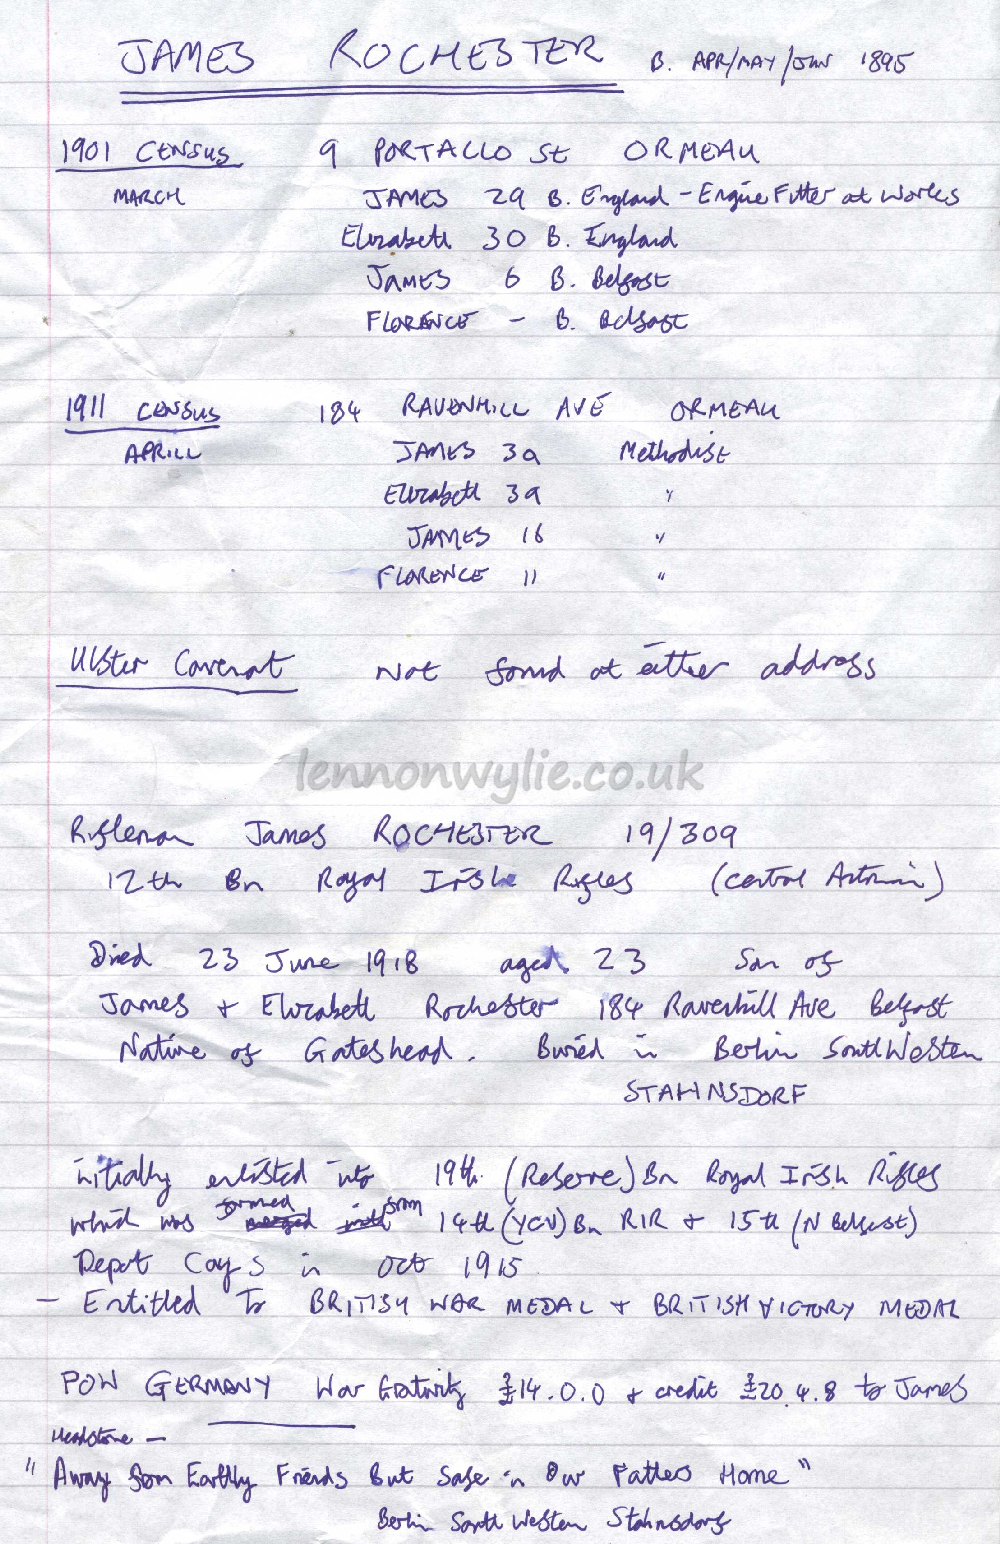 JAMES ROCHESTER B. APR/MAY/JUN 1895
1901 CENSUS 9 PORTALLO St ORMEAU
MARCH JAMES 29 B. England - Engine Fitter at Works
Elizabeth 30 B. England
JAMES 6 B. Belfast
FLORENCE - B. Belfast
1911 CENSUS 184 RAVENHILL AVE ORMEAU
APRILL JAMES 39 Methodist
Elizabeth 39 "
JAMES 16 "
FLORENCE 11 "
Ulster Covenant Not found at either address
lennonwylie.co.uk
Rifleman James ROCHESTER 19/309
12th Bn Royal Irish Rifles (Central Antrim)
Died 23 June 1918 aged 23 Son of
James + Elizabeth Rochester 184 Ravenhill Ave Belfast
Native of Gateshead. Buried in Berlin South Western
STAHNSDORF
initially enlisted into 19th (Reserve) Bn Royal Irish Rifles
which was formed merged into from 14th (YCV) Bn RIR + 15th (N Belfast)
Depot Coys in Oct 1915
- Entitled To BRITISH WAR MEDAL + BRITISH VICTORY MEDAL
POW GERMANY War Gratuity £14.0.0 + credit £20.4.8 to James
Headstone -
"Away from Earthly Friends But Safe in Our Fathers Home"
Berlin South Western Stahnsdorf